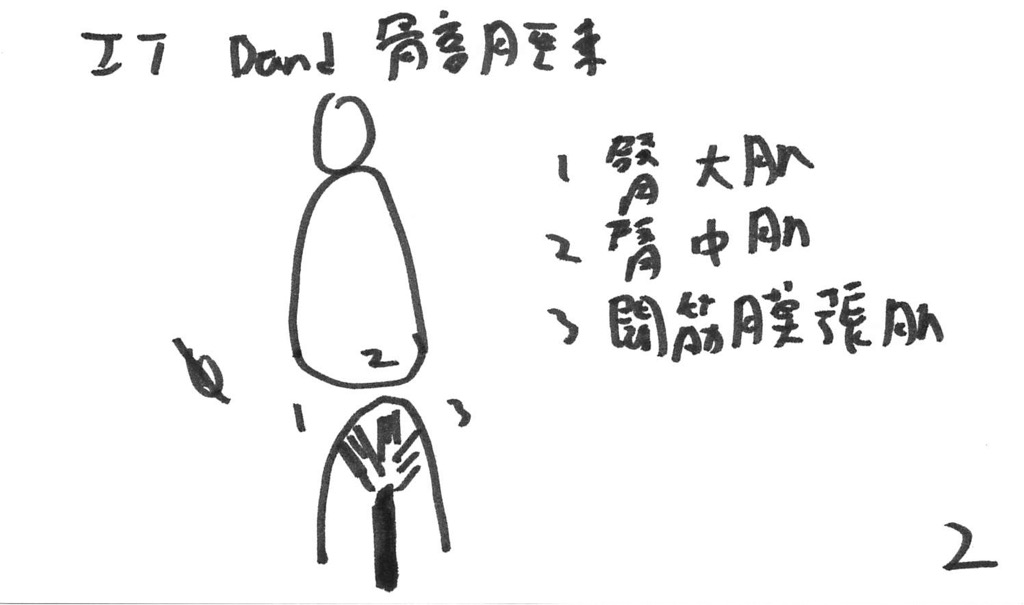 IT Dand 髂脛束
1 臀大肌
2 臀中肌
3 闊筋膜張肌
2
1 3
2